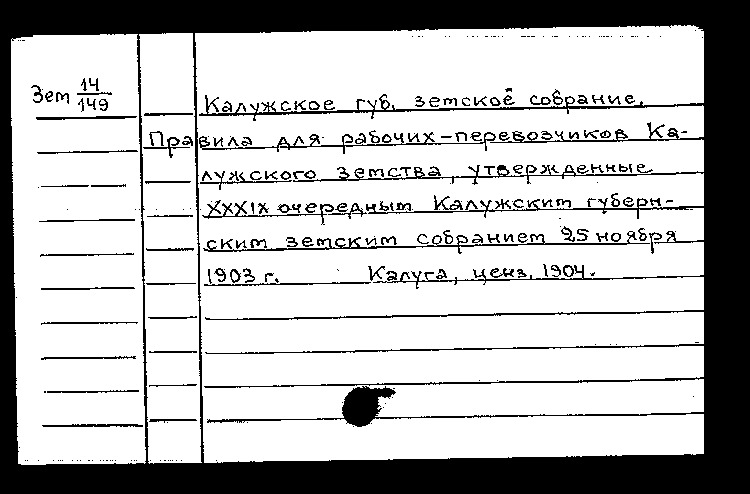 Зем 14/149
Калужское губ. земское собрание.
Правила для рабочих-перевозчиков Ка-
лужского земства, утвержденные
XXXIX очередным Калужским губерн-
ским земским собранием 25 ноября
1903 г. Калуга, ценз. 1904.